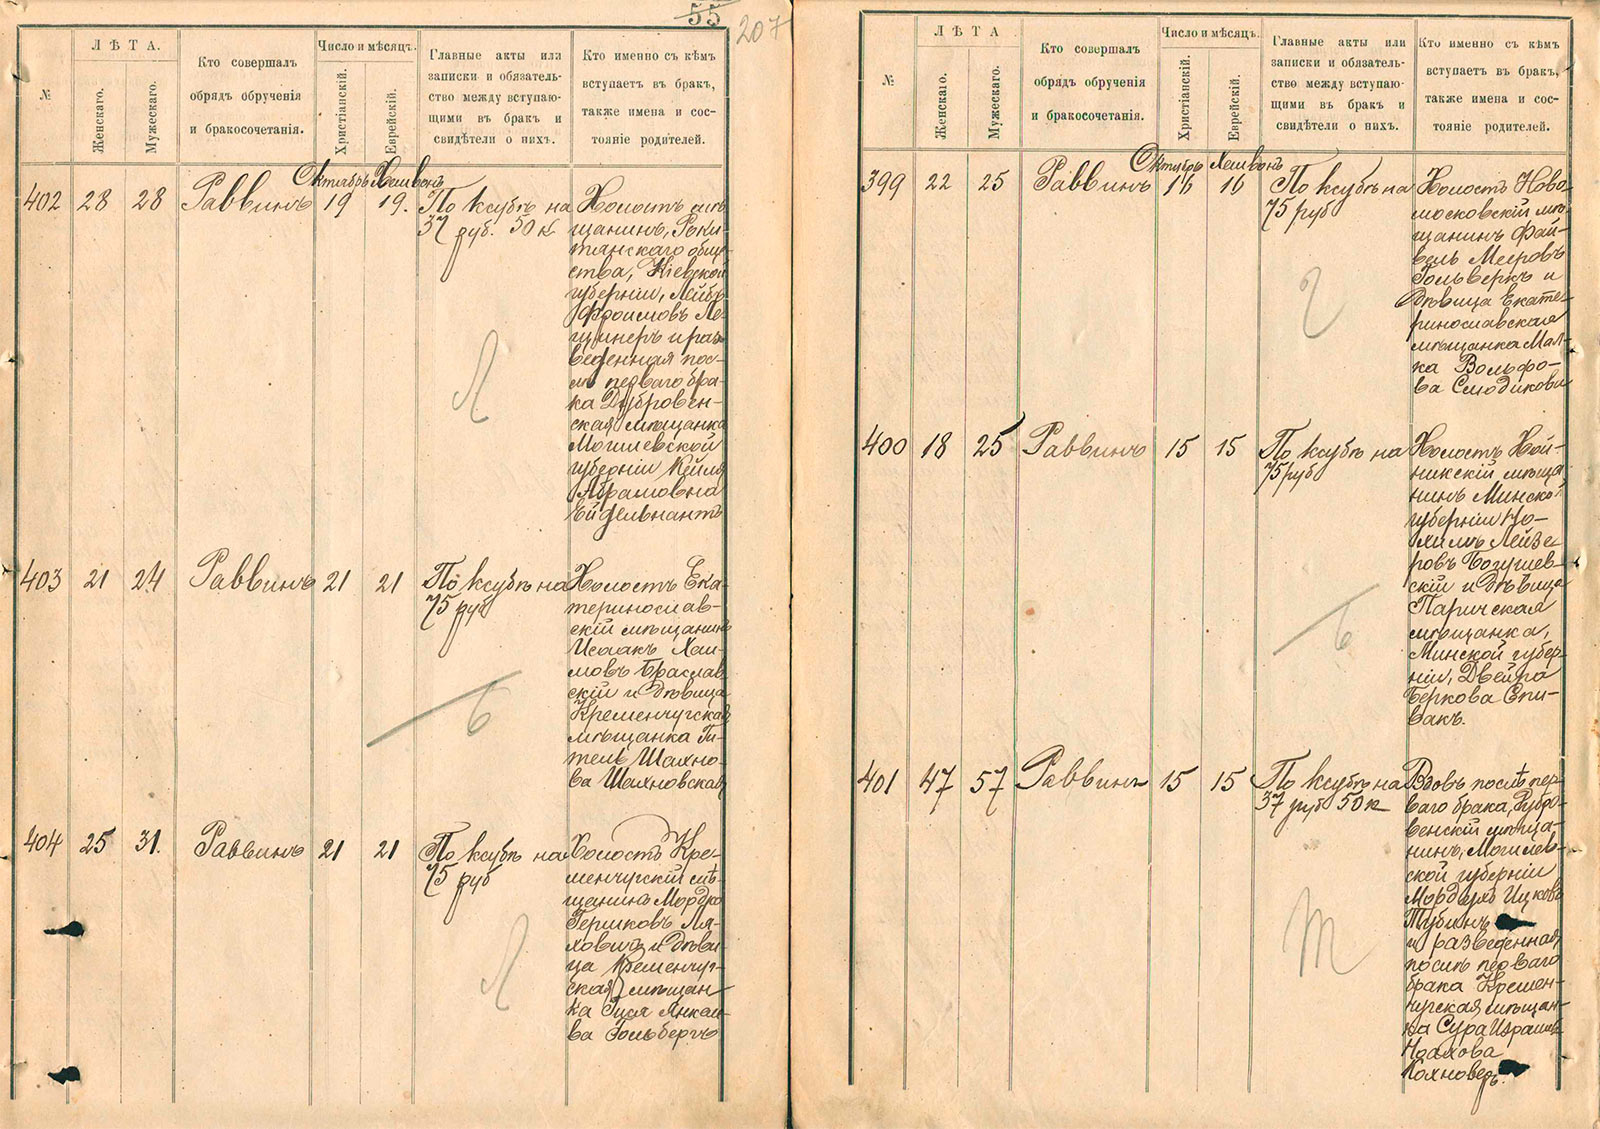 55
207
ЛѢТА.
№
Женскаго.
Мужескаго.
Кто совершалъ
обрядъ обрученія
и бракосочетанія.
Число и мѣсяцъ.
Христіанскій.
Еврейскій.
Главные акты или
записки и обязатель-
ство между вступаю-
щими въ бракъ и
свидѣтели о нихъ.
Кто именно съ кѣмъ
вступаетъ въ бракъ,
также имена и сос-
тояніе родителей.
Октябрь Хешвонъ
402 28 28 Раввинъ 19 19. По ксубѣ на
37 руб. 50 к.
Холостъ мѣ-
щанинъ, Роки-
тянскаго обще-
ства, Кіевской
губерніи, Лейбъ
Фроимовъ Ле-
щинеръ и раз-
веденная пос-
лѣ перваго бра-
ка Дубровен-
ская мѣщанка
Могилевской
губерніи Кейля
Абрамовна
403 21 24 Раввинъ 21 21 По ксубѣ на
75 руб
Холостъ Ека-
теринослав-
скій мѣщанинъ
Исаакъ Хаи-
мовъ Браслав-
скій и дѣвица
Кременчугская
мѣщанка Ги-
тель Шахно-
ва Шахновская
404 25 31. Раввинъ 21 21 По ксубѣ на
75 руб
Холостъ Кре-
менчугскій мѣ-
щанинъ Мордко
Гершковъ Ля-
ховичъ и дѣви-
ца Кременчуг-
ская мѣщан-
ка Гися Янкеле-
ва Гольбергъ
Л
Б
Л
ЛѢТА
№
Женскаго.
Мужескаго.
Кто совершалъ
обрядъ обрученія
и бракосочетанія.
Число и мѣсяцъ.
Христіанскій.
Еврейскій.
Главные акты или
записки и обязатель-
ство между вступаю-
щими въ бракъ и
свидѣтели о нихъ.
Кто именно съ кѣмъ
вступаетъ въ бракъ,
также имена и сос-
тояніе родителей.
Октябрь Хешвонъ
399 22 25 Раввинъ 16 16 По ксубѣ на
75 руб
Холостъ Ново-
московскій мѣ-
щанинъ Фай-
вель Мееровъ
Гольверкъ и
дѣвица Екате-
ринославская
мѣщанка Мал-
ка Вольфо-
ва
400 18 25 Раввинъ 15 15 По ксубѣ на
75 руб
Холостъ Хой-
никскій мѣща-
нинъ Минской
губерніи Но-
химъ Лейзе-
ровъ Богушев-
скій и дѣвица
Паричская
мѣщанка,
Минской губер-
ніи, Двейра
Беркова Спи-
вакъ.
401 47 57 Раввинъ 15 15 По ксубѣ на
37 руб 50 к
Вдовъ послѣ пер-
ваго брака, Дубро-
венскій мѣща-
нинъ, Могилев-
ской губерніи
Мордухъ Ицковъ
Тубинъ
и разведенная,
послѣ перваго
брака Кремен-
чугская мѣщан-
ка Сура
Ноахова
Кохноверъ.
Г
Б
Т